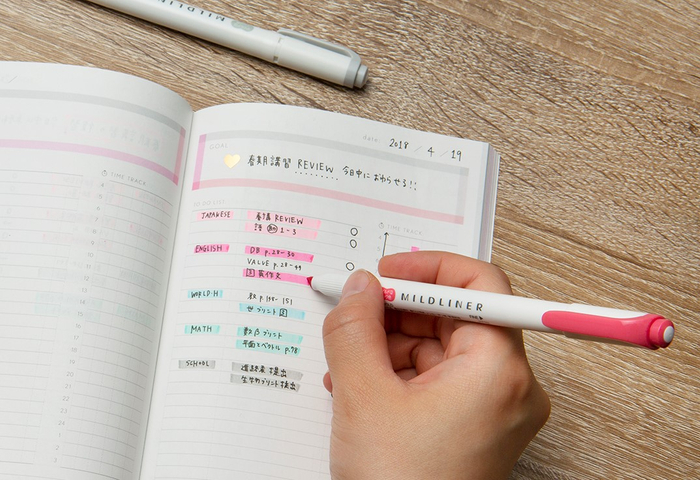 MILDLINER
date:
2018 / 4 / 19
GOAL
春期講習 REVIEW 今日中におわらせる!!
TO DO LIST
TIME TRACK
TIME TRACK
JAPANESE
春講 REVIEW
語 1-3
ENGLISH
DB p.28-30
VALUE p.28-49
英作文
WORLD-H
教 p.148-151
世プリント
MATH
数β プリント
平面ベクトル p.98
SCHOOL
進路票提出
生物プリント提出
MILDLINER